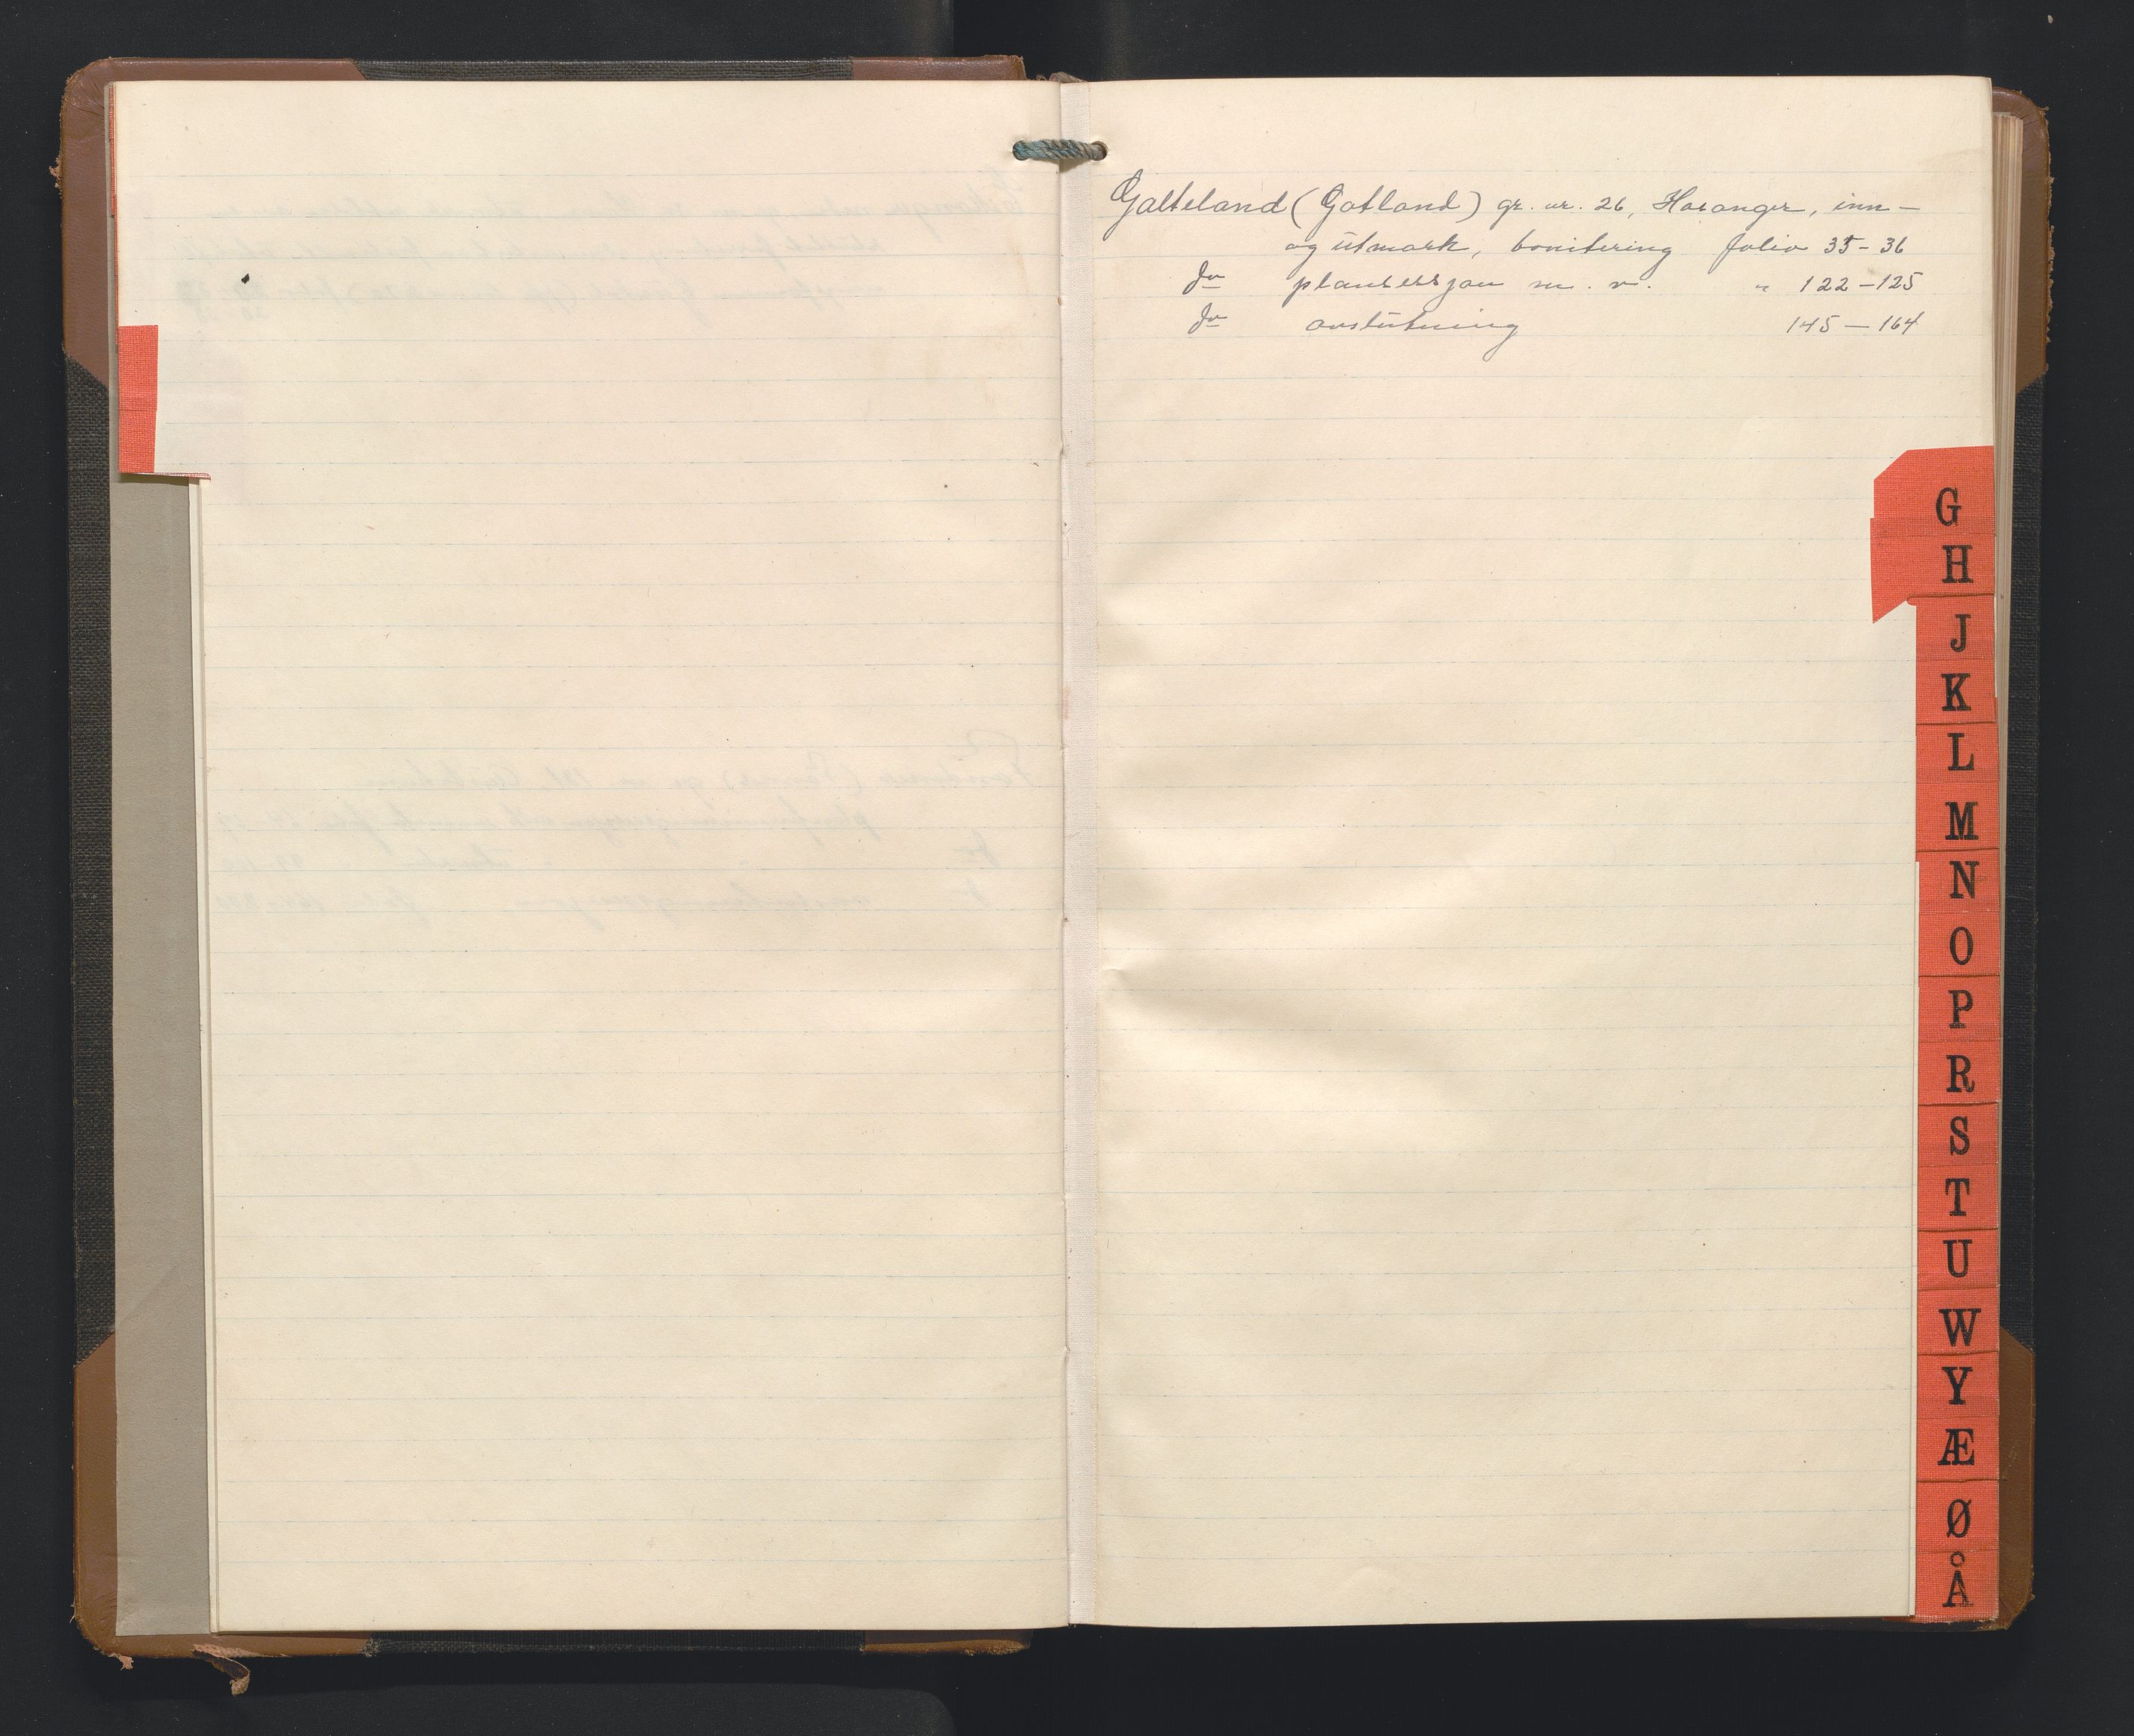 Galteland (Gatland) gr. nr. 26, Haranger, inn-
og útmark, bonitering folio 35-36
do plansessjon m. v. " 122-125
do avslútning 145-164
G
H
J
K
L
M
N
O
P
R
S
T
U
W
Y
Æ
Ø
Å